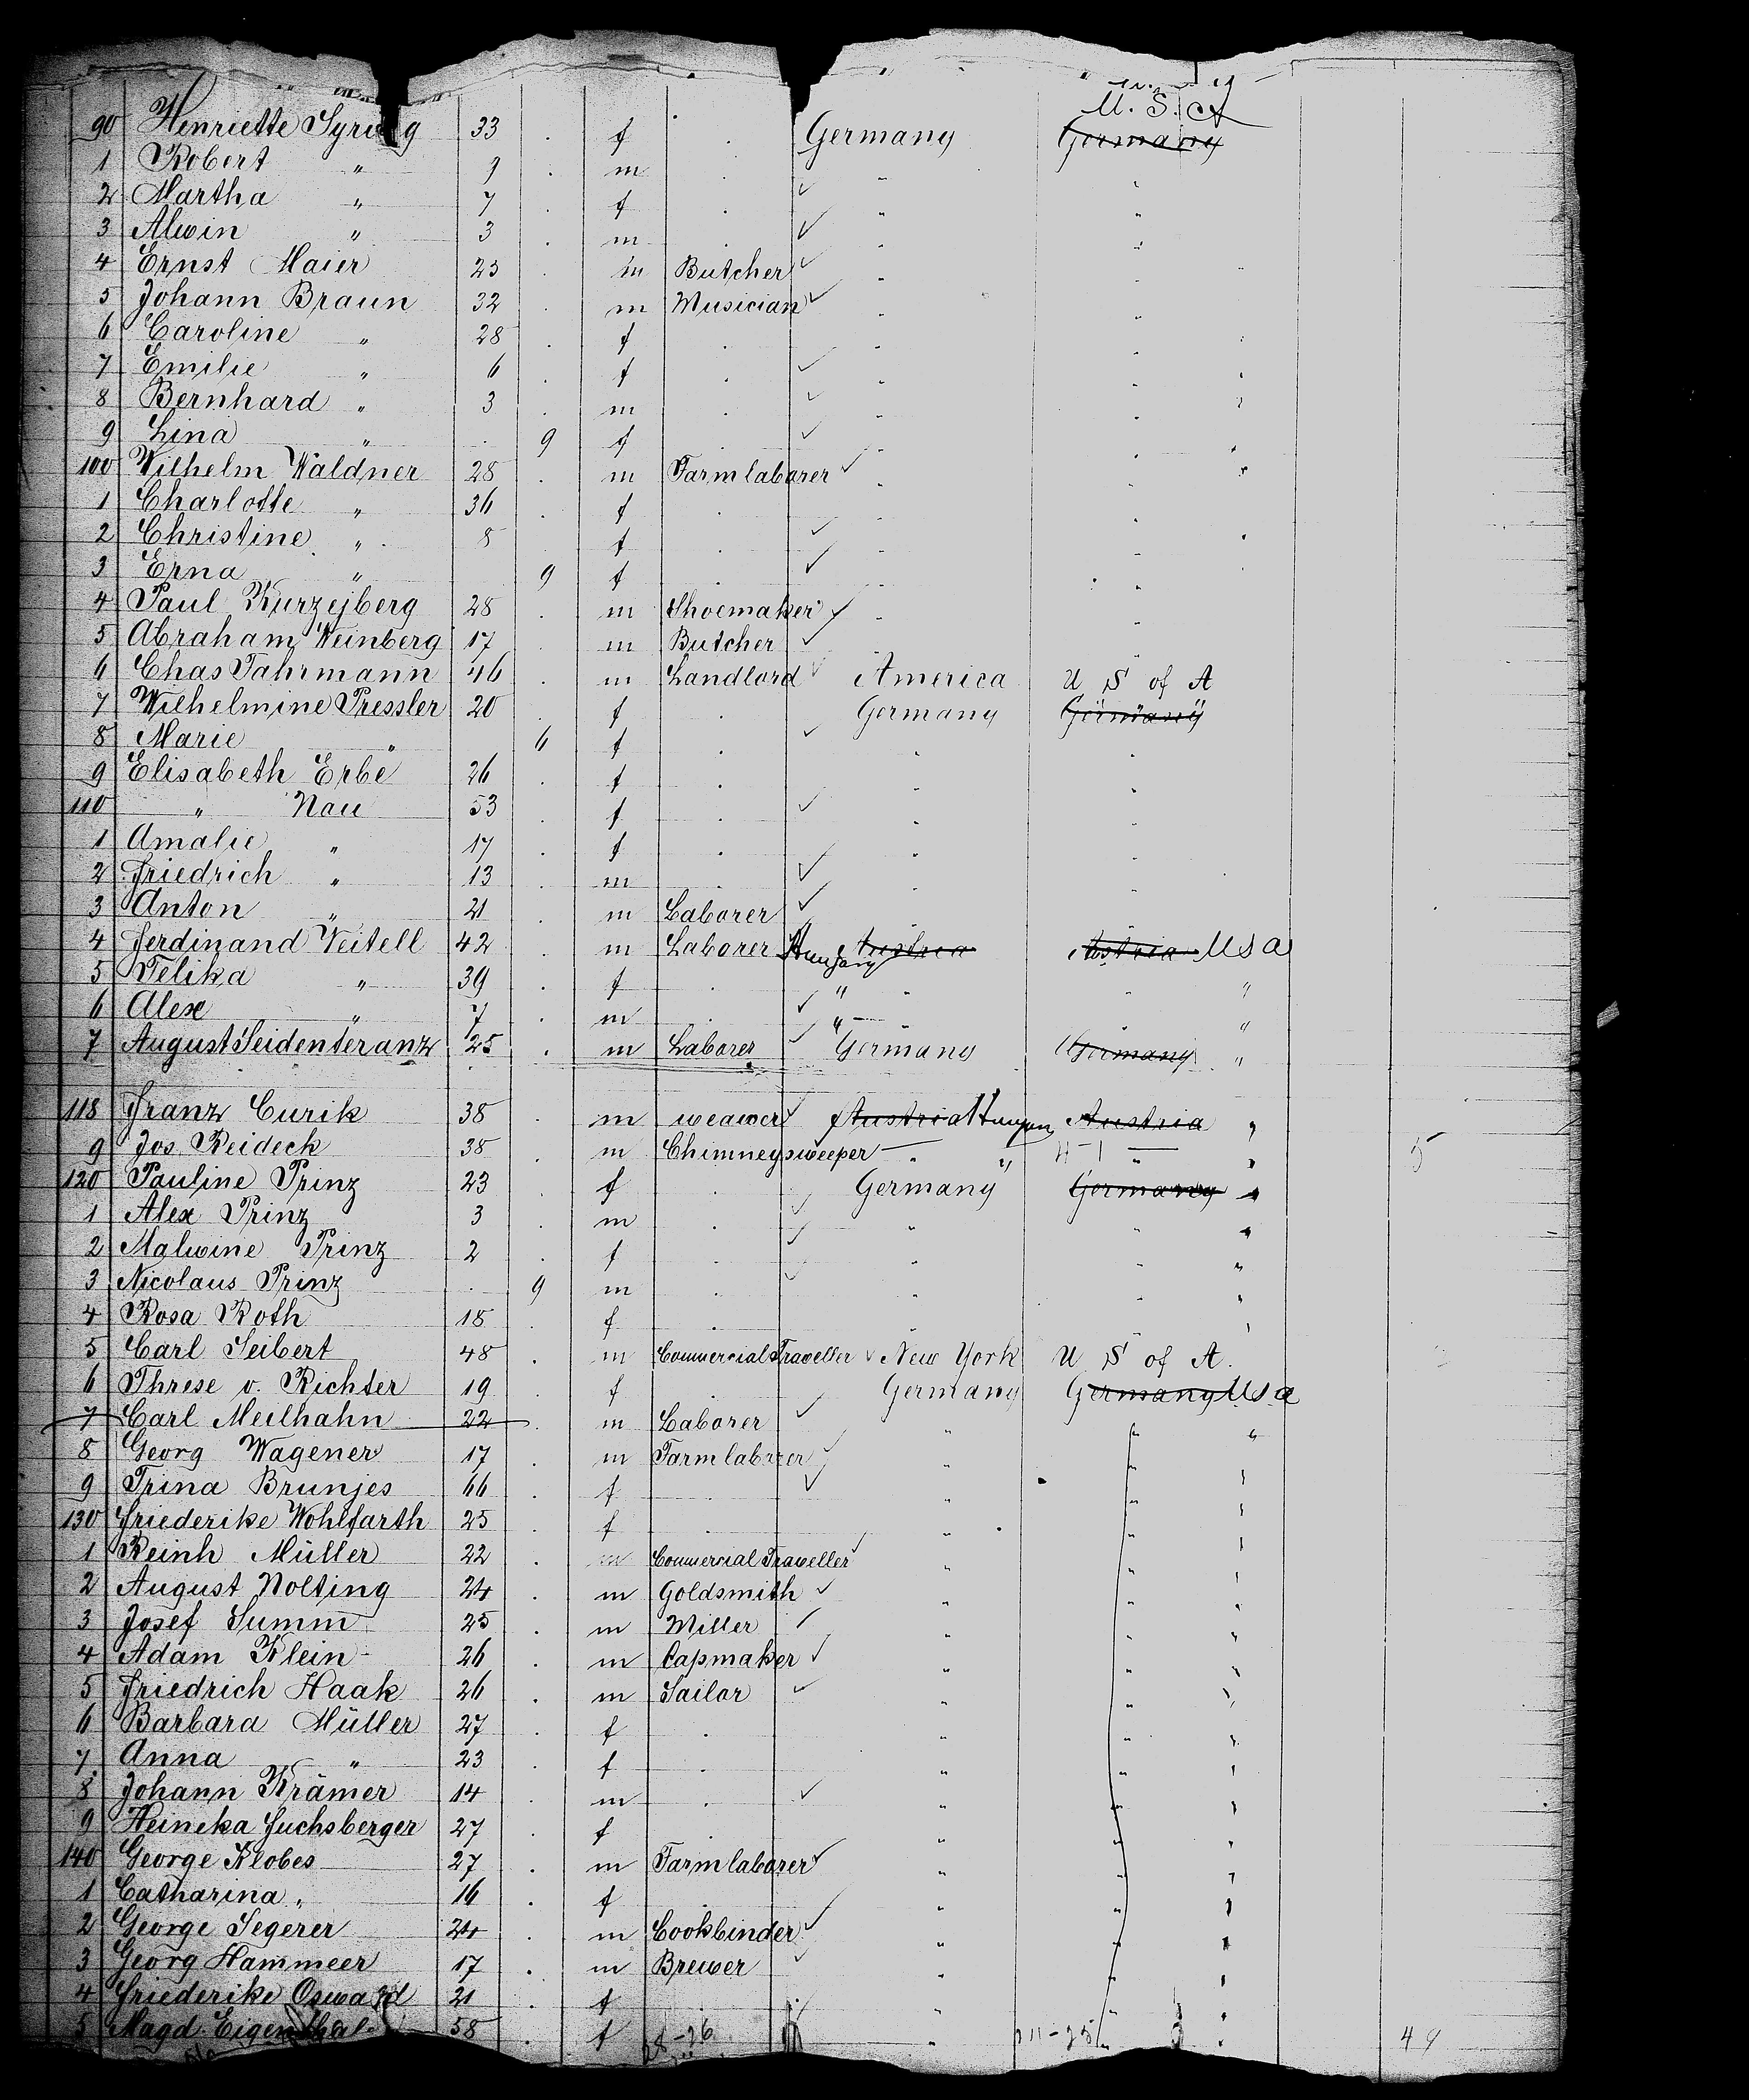 U. S. A
90 Henriette Syring 33 . f . Germany Germany
1 Robert " 9 . m . " "
2 Martha " 7 . f . ✓ " "
3 Alwin " 3 . m . ✓ " "
4 Ernst Maier 23 . m Butcher ✓ " "
5 Johann Braun 32 . m Musician ✓ " "
6 Caroline " 28 . f . " "
7 Emilie " 6 . f . ✓ " "
8 Bernhard " 3 . m . ✓ " "
9 Lina " . 9 f . ✓ " "
100 Wilhelm Waldner 28 . m Farmlaborer ✓ " "
1 Charlotte " 36 . f . " "
2 Christine " 8 f . ✓ " "
3 Erna " 9 f . ✓ " "
4 Paul Kurzejberg 28 . m Shoemaker ✓ " "
5 Abraham Weinberg 17 m Butcher ✓ "
6 Chas Fahrmann 46 . m Landlord ✓ America U S of A
7 Wilhelmine Pressler 20 . f . Germany Germany
8 Marie " 6 f . ✓ " "
9 Elisabeth Erbe 26 . f . " "
110 " Nau 53 . f . ✓ " "
1 Amalie " 17 . f . " "
2 Friedrich " 13 . m . ✓ " "
3 Anton " 21 . m Laborer ✓ "
4 Ferdinand Veitell 42 . m Laborer Hungary Austria Austria USA
5 Felika " 39 . f . " " "
6 Alex " 7 . m . ✓ " " "
7 August Seidenteranz 25 . m Laborer ✓ Germany Germany "
118 Franz Curik 38 . m weawer ✓ Austria Hungary Austria "
9 Jos. Reideck 38 . m Chimneysweeper " " " " 5
120 Pauline Prinz 23 . f . ✓ Germany Germany "
1 Alex Prinz 3 . m . ✓ " " "
2 Malwine Prinz 2 . f . ✓ " " "
3 Nicolaus Prinz . 9 m . ✓ " " "
4 Rosa Roth 18 . f . " " "
5 Carl Seibert 48 . m Commercial Traveller ✓ New York U S of A.
6 Threse v. Richter 19 . f . ✓ Germany Germany USA
7 Carl Meilhahn 22 . m Laborer ✓ " " "
8 Georg Wagener 17 . m Farmlaborer ✓ " " "
9 Trina Brunjes 66 . f . ✓ " " "
130 Friederike Wohlfarth 25 . f . " " "
1 Reinh Müller 22 . m Commercial Traveller ✓ " " "
2 August Nolting 24 . m Goldsmith ✓ " " "
3 Josef Summ 25 . m Miller ✓ " " "
4 Adam Klein 26 . m Capmaker ✓ " " "
5 Friedrich Haak 26 . m Sailor ✓ " " "
6 Barbara Müller 27 . f . " " "
7 Anna " 23 . f . " " "
8 Johann Krämer 14 . m . ✓ " " "
9 Heineka Fuchsberger 27 . f . " " "
140 George Klobes 27 . m Farmlaborer ✓ " " "
1 Catharina " 16 . f . " " "
2 George Segerer 24 . m Cookbinder ✓ " " "
3 Georg Hammeer 17 . m Brewer ✓ " " "
4 Friederike Oswald 21 . f . " " "
5 Magd. Eigenthal 58 . f " "